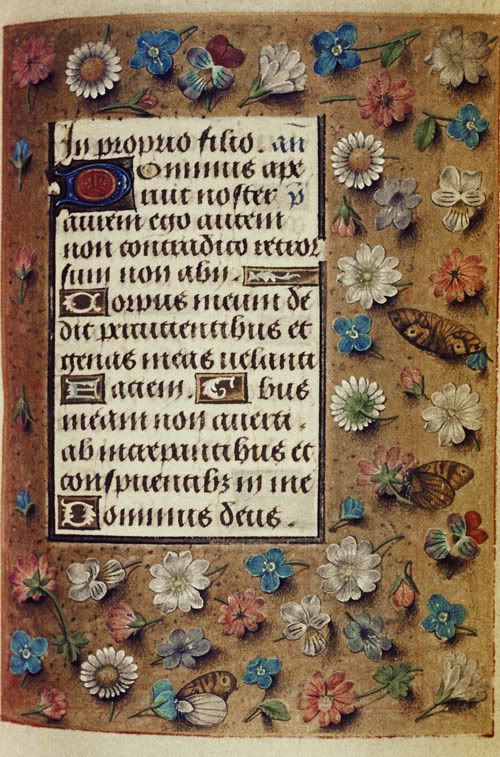 In proprio filio. an
Dominus ape
ruit noster p̄
aurem ego autem
non contradico retror
sum non abii.
Corpus meum de
dit percutientibus et
genas meas uelanti
Faciem. bus
meam non auerti.
ab increpantibus et
conspuentibꝫ in me
Dominus deus.